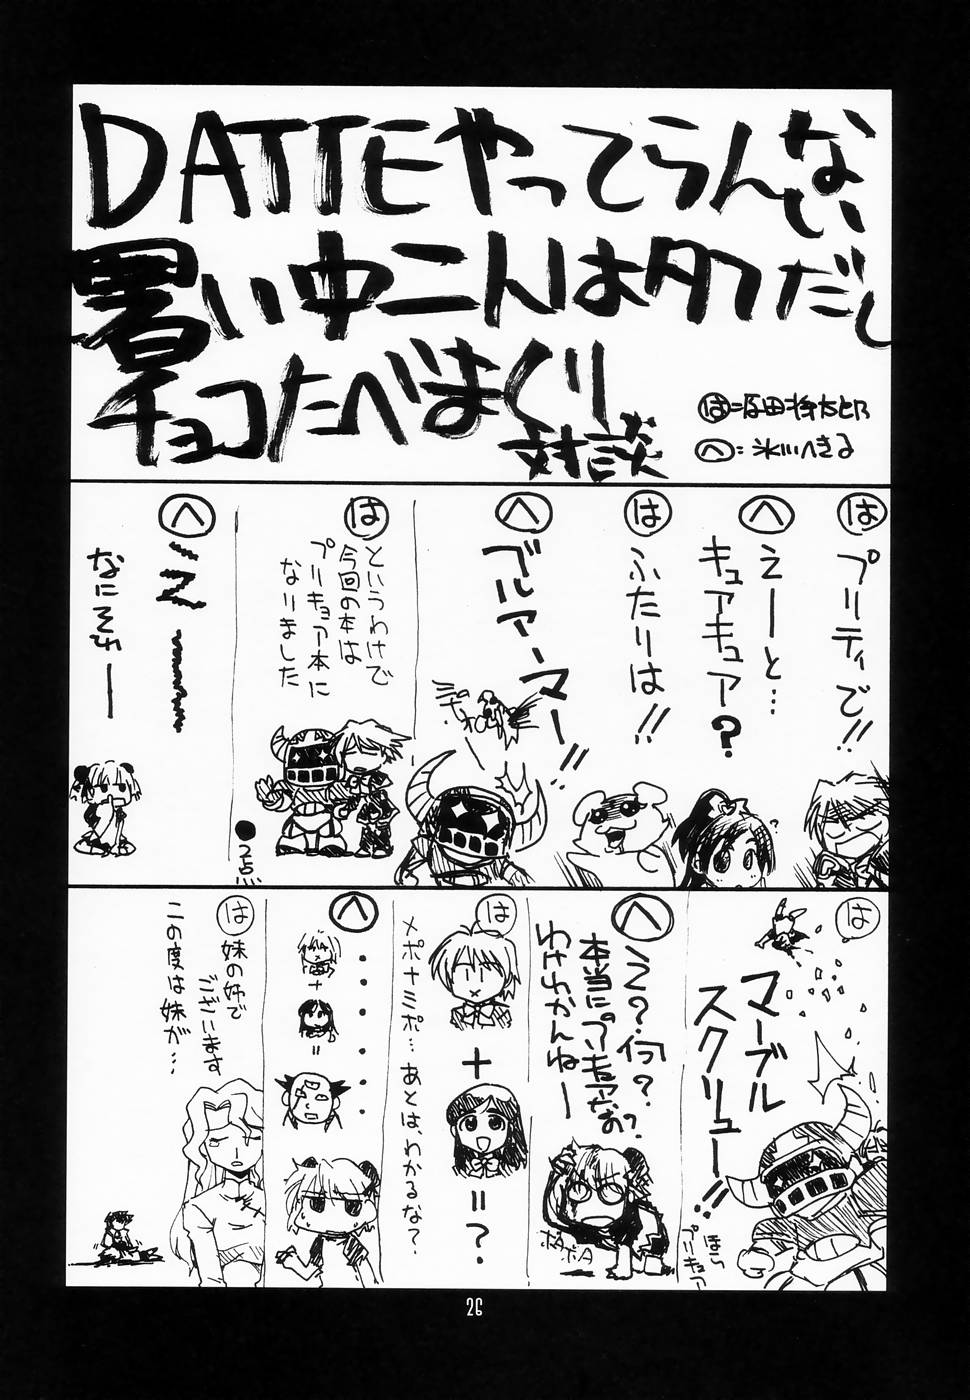 DATTEやってらんない
暑い中こんばタフだし
チョコたべまくり
対談
は=原田将太郎
へ:氷川へきる
は
プリティで!!
へ
えーと…
キュアキュア?
は
ふたりは!!
へ
ブルアーマー!!
は
というわけで
今回の本は
プリキュア本に
なりました
●2点
へ
~え~
なにそれー
は
マーブル
スクリュー!!
ほら
プリキュア
へ
え?何?
本当にプリキュアなの?
わけわかんねー
ポタポタ
は
+
=?
メポナミポ…あとは、わかるな?
へ
・・・・・・・・
+
=
は
妹の姉で
ございます
この度は妹が…
26